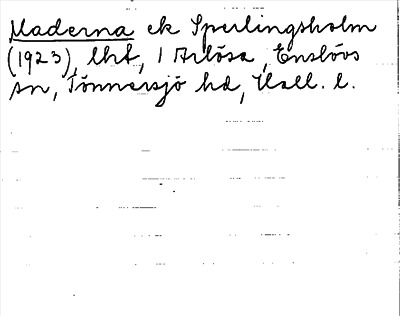 Maderna ek Sperlingsholm
(1923), lht, 1 Arlösa, Enslövs
sn, Tönnersjö hd, Hall. l.